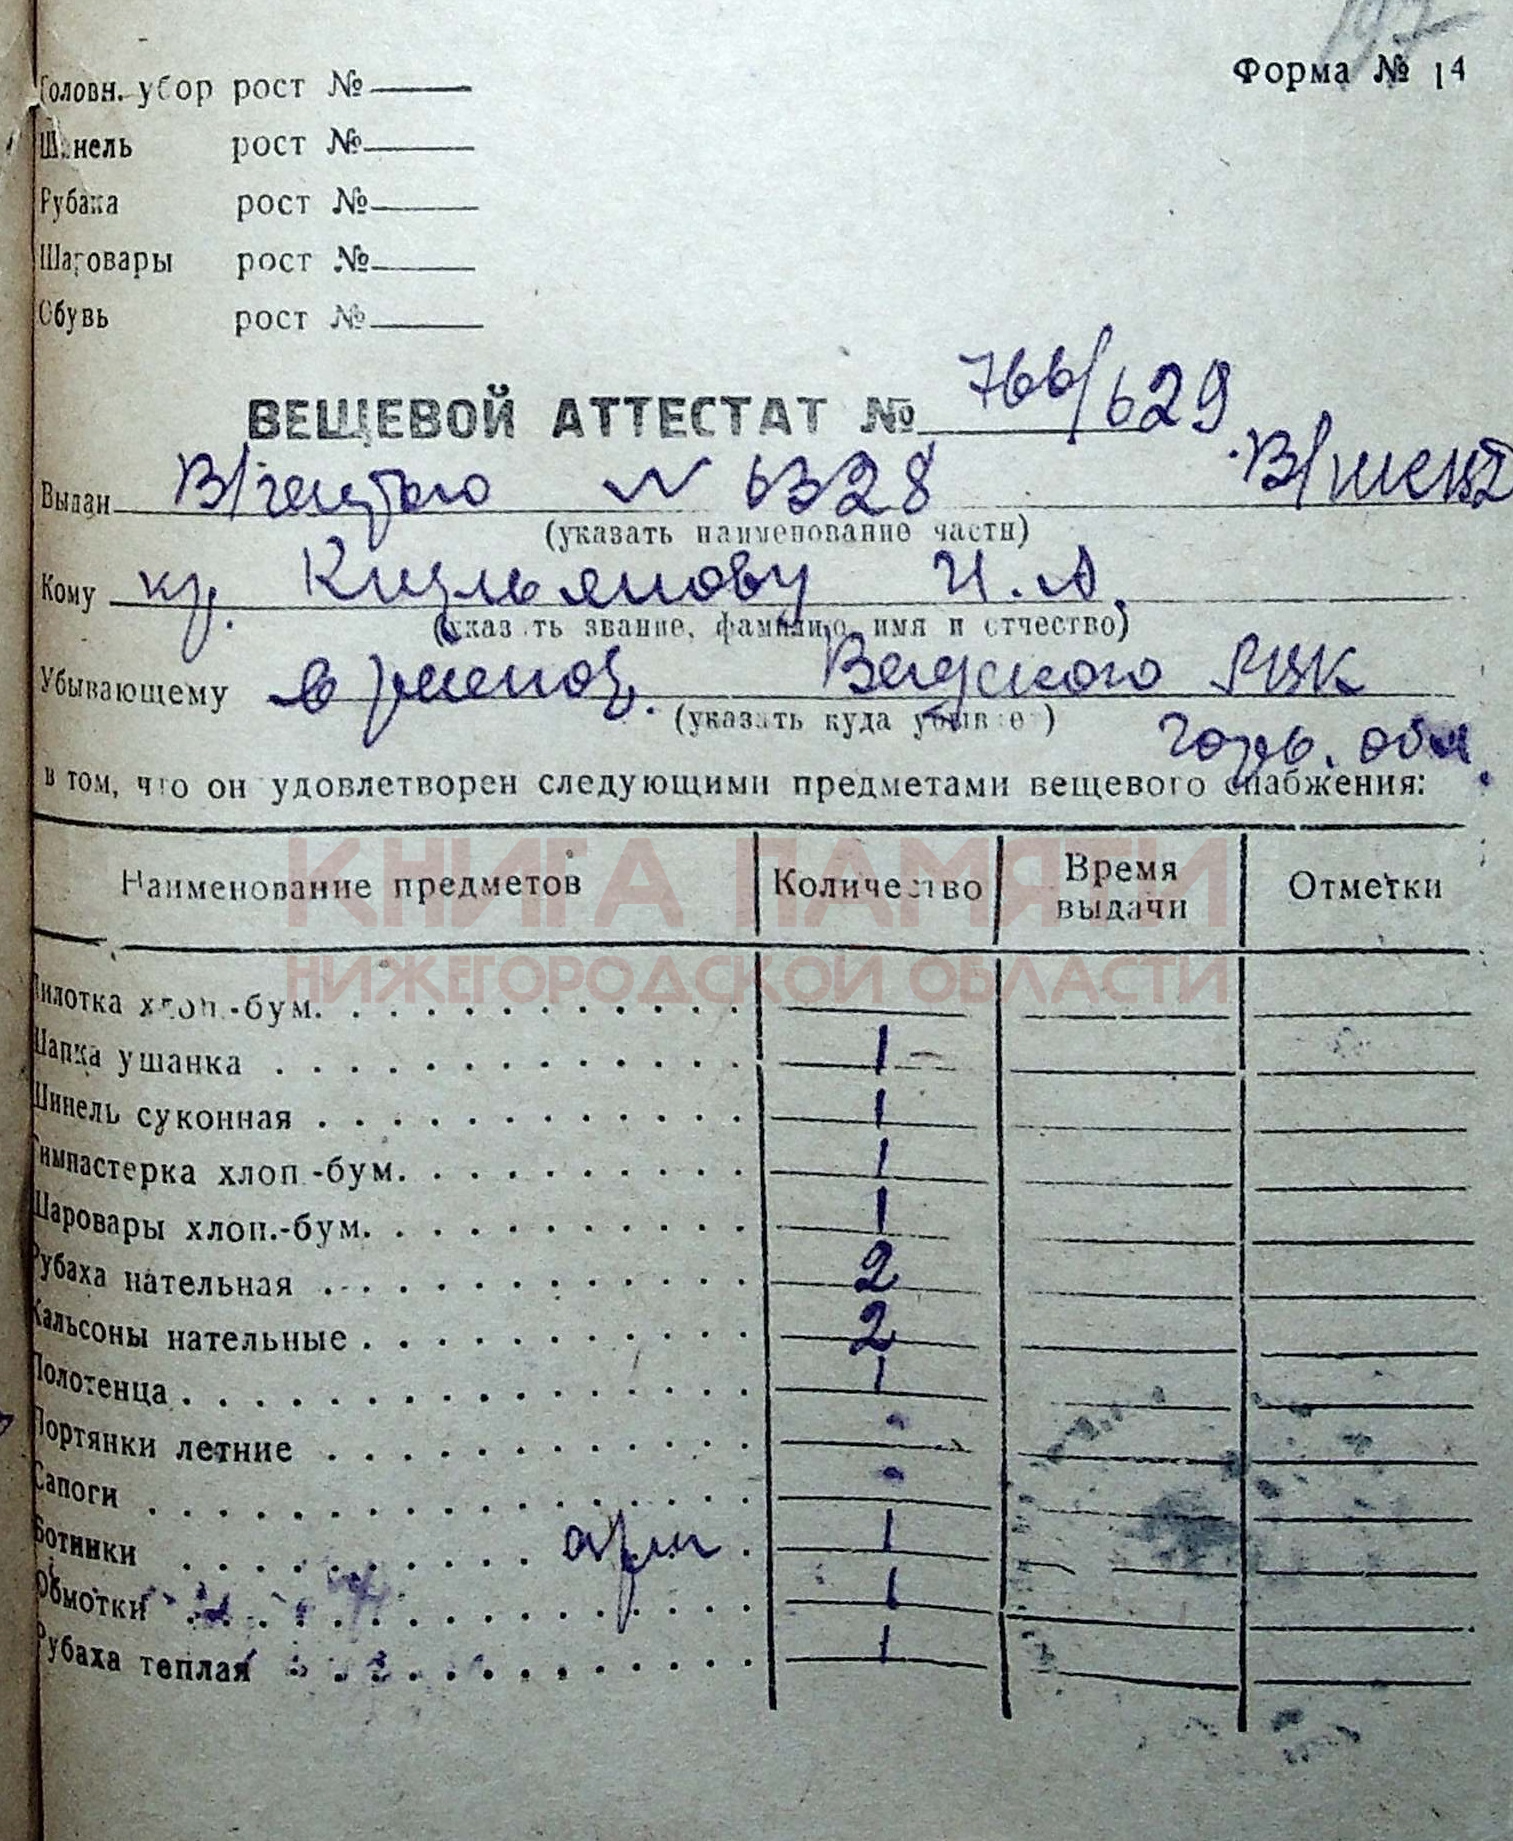 197
Форма № 14
Головн. убор рост №
Шинель рост №
Рубаха рост №
Шаровары рост №
Обувь рост №
ВЕЩЕВОЙ АТТЕСТАТ № 766/629
Выдан В/частью № 6328
(указать наименование части)
Кому кр. И.А.
(указать звание, фамилию, имя и отчество)
Убывающему в Вадского РВК
(указать куда убывает)
Горьк. обл.
в том, что он удовлетворен следующими предметами вещевого снабжения:
Наименование предметов Количество Время выдачи Отметки
КНИГА ПАМЯТИ
НИЖЕГОРОДСКОЙ ОБЛАСТИ
Пилотка хлоп.-бум.
Шапка ушанка 1
Шинель суконная 1
Гимнастерка хлоп.-бум. 1
Шаровары хлоп.-бум. 1
Рубаха нательная 2
Кальсоны нательные 2
Полотенца 1
Портянки летние
Сапоги
Ботинки 1
Обмотки 1
Рубаха теплая 1